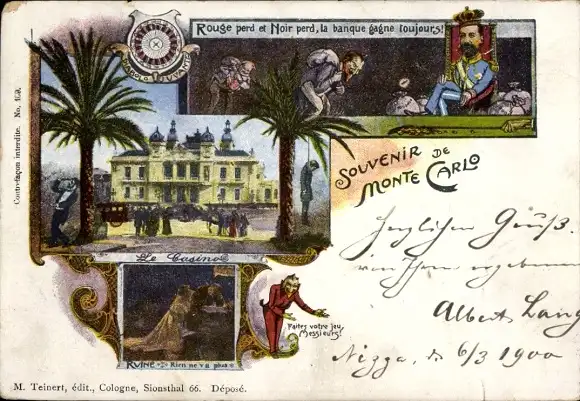 Rouge perd et Noir perd, la banque gagne toujours!
Contrefaçon interdite. No.
SOUVENIR DE
MONTE CARLO
Le Casino
Herzlichen Gruß.
Albert Lang
Nizza, d. 6/3 1900
Faites votre jeu,
Messieurs!
RUINE Rien ne va plus
M. Teinert, édit., Cologne, Sionsthal 66. Déposé.